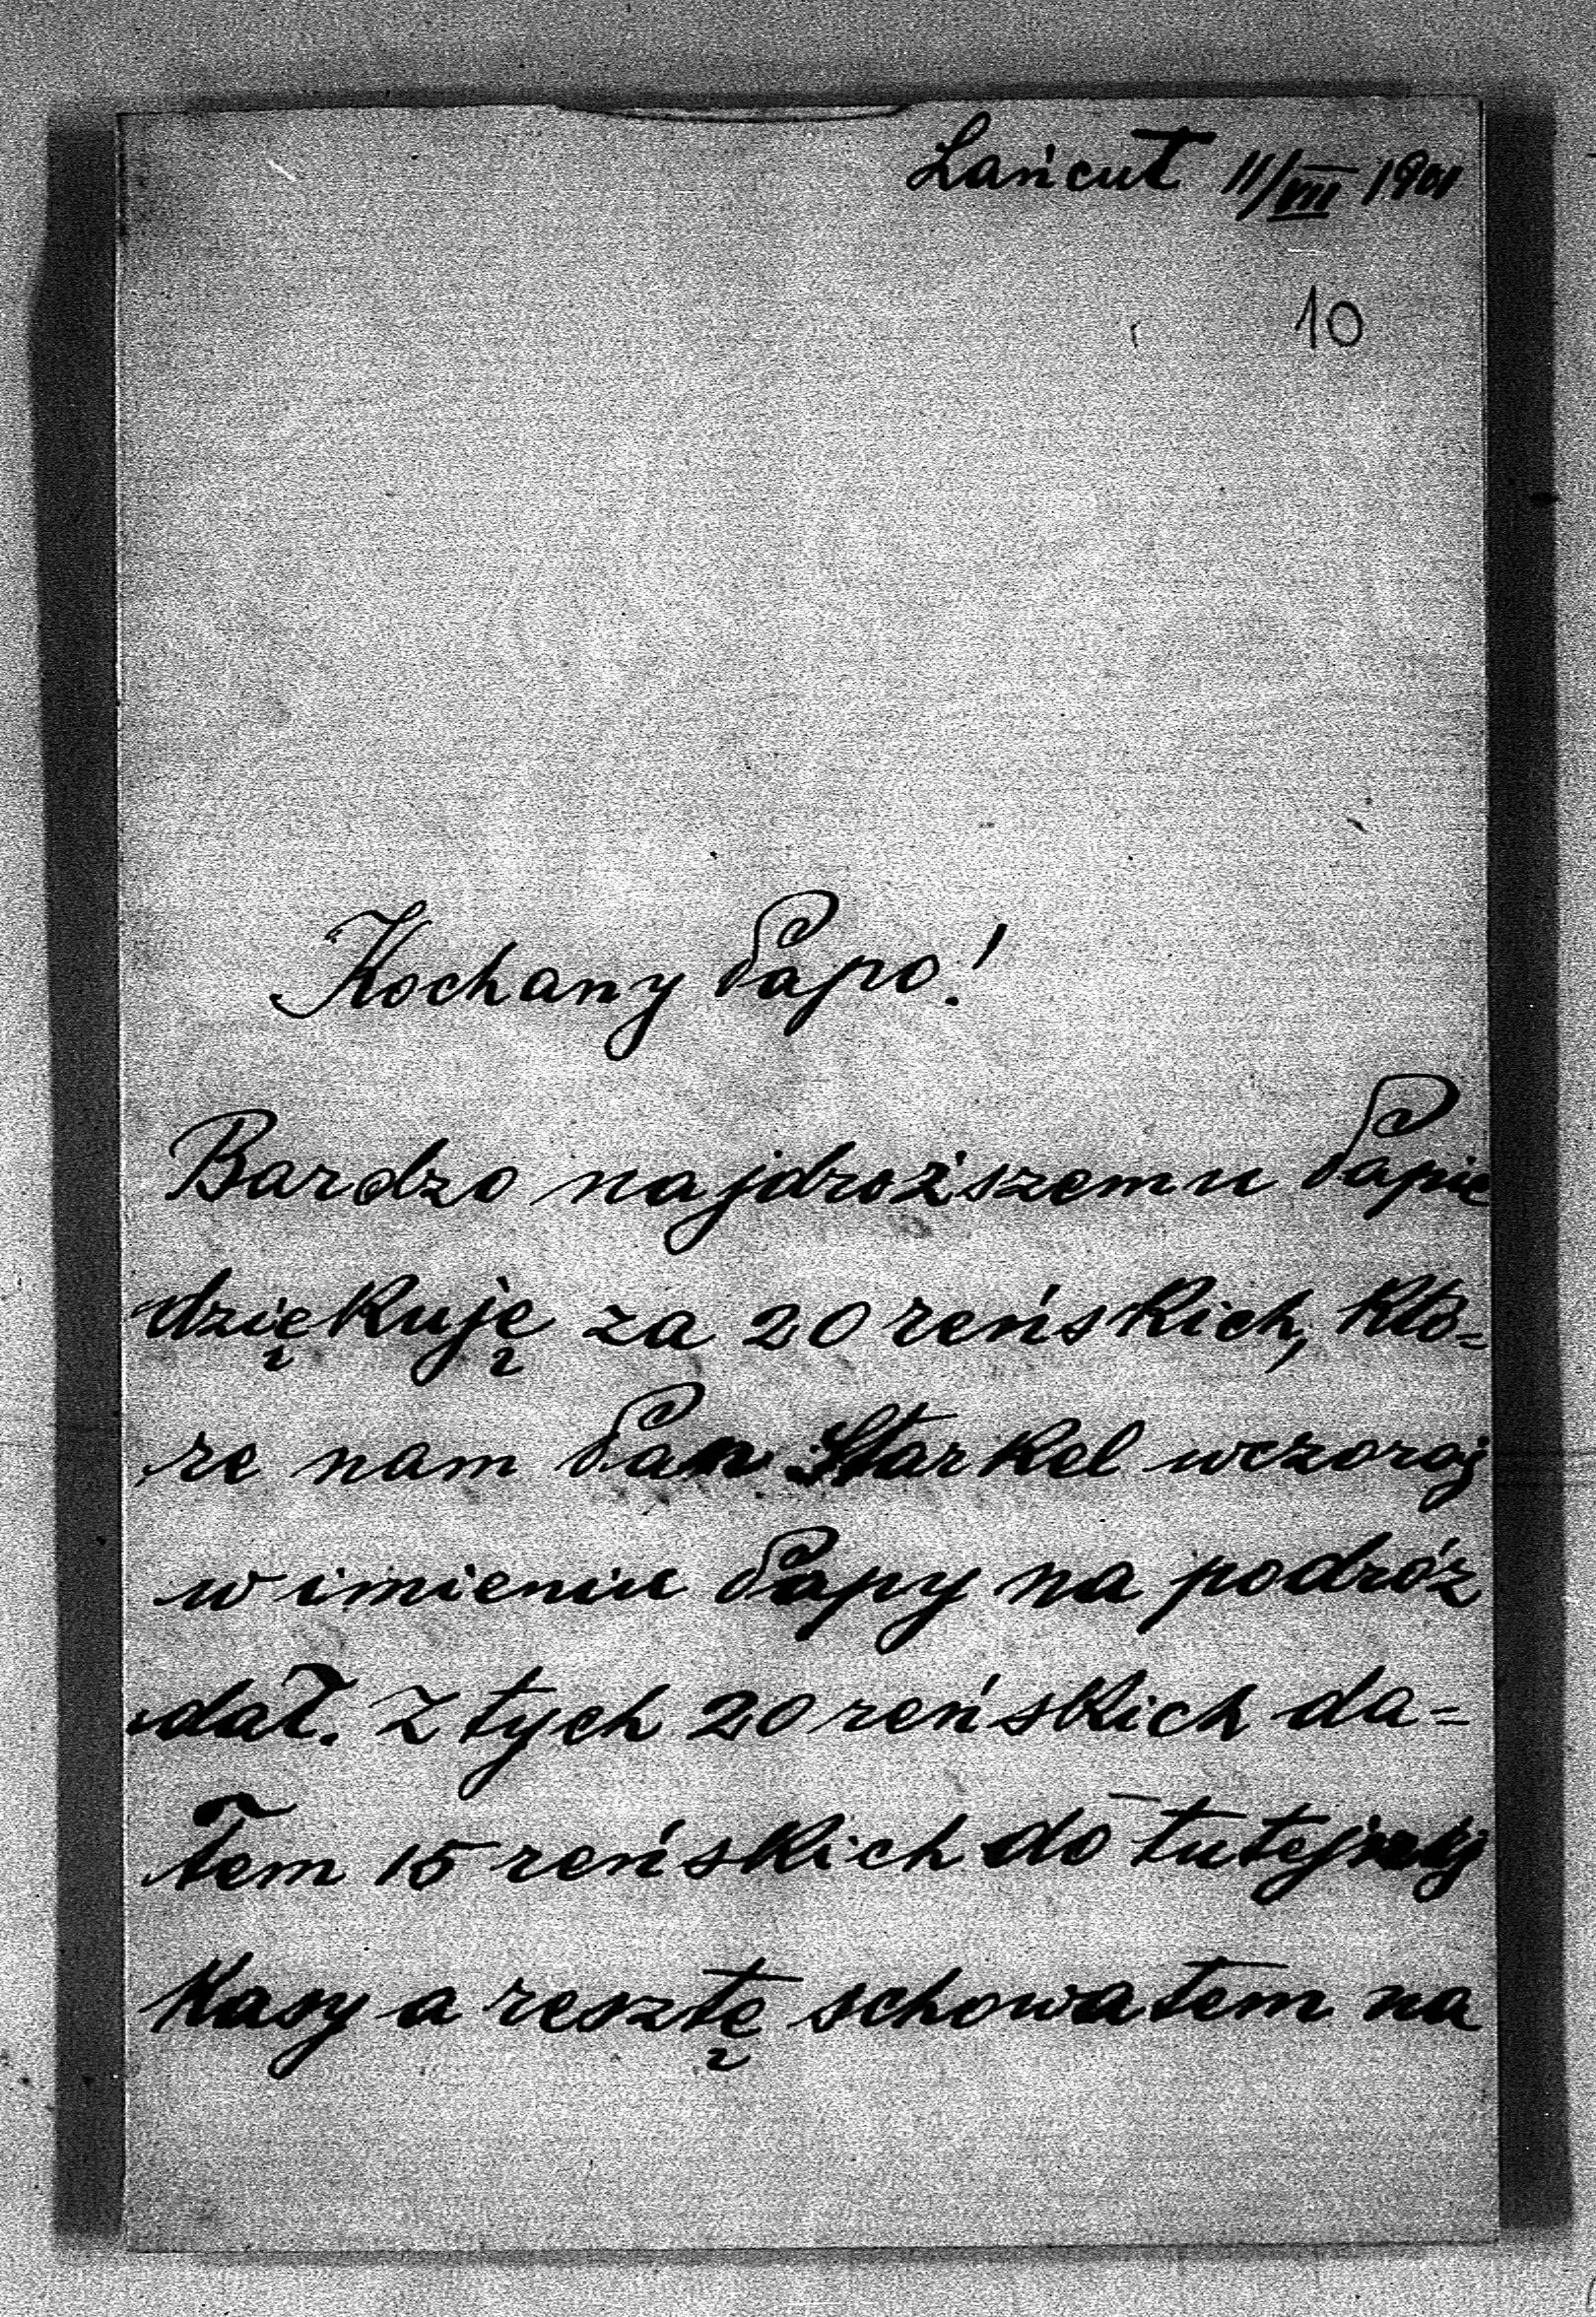 Łańcut 11/VIII 1901
10
Kochany Papo!
Bardzo najdroższemu Papie
dziękuję za 20 reńskich, któ=
re nam Pan Starkel wczoraj
w imieniu Papy na podróż
dał. Z tych 20 reńskich da=
łem 15 reńskich do tutejszej
Kasy a resztę schowałem na